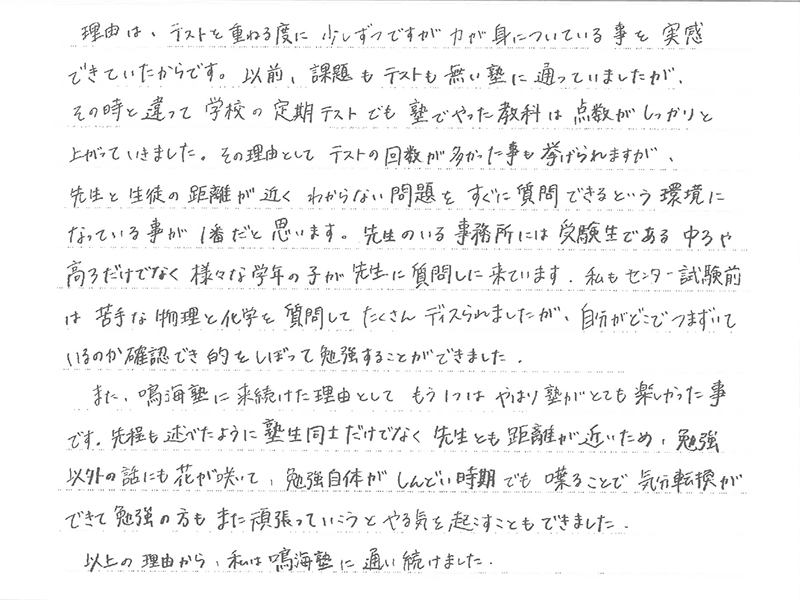 理由は、テストを重ねる度に少しずつですが力が身についている事を実感
できていたからです。以前、課題もテストも無い塾に通っていましたが、
その時と違って学校の定期テストでも塾でやった教科は点数がしっかりと
上がっていきました。その理由としてテストの回数が多かった事も挙げられますが、
先生と生徒の距離が近くわからない問題をすぐに質問できるという環境に
なっている事が1番だと思います。先生のいる事務所には受験生である中3や
高3だけでなく様々な学年の子が先生に質問しに来ています.私もセンター試験前
は苦手な物理と化学を質問してたくさんディスられましたが、自分がどこでつまずいて
いるのか確認でき的をしぼって勉強することができました.
また、鳴海塾に来続けた理由としてもう1つはやはり塾がとても楽しかった事
です.先程も述べたように塾生同士だけでなく先生とも距離が近いため、勉強
以外の話にも花が咲いて、勉強自体がしんどい時期でも喋ることで気分転換が
できて勉強の方もまた頑張っていこうとやる気を起こすこともできました.
以上の理由から、私は鳴海塾に通い続けました.